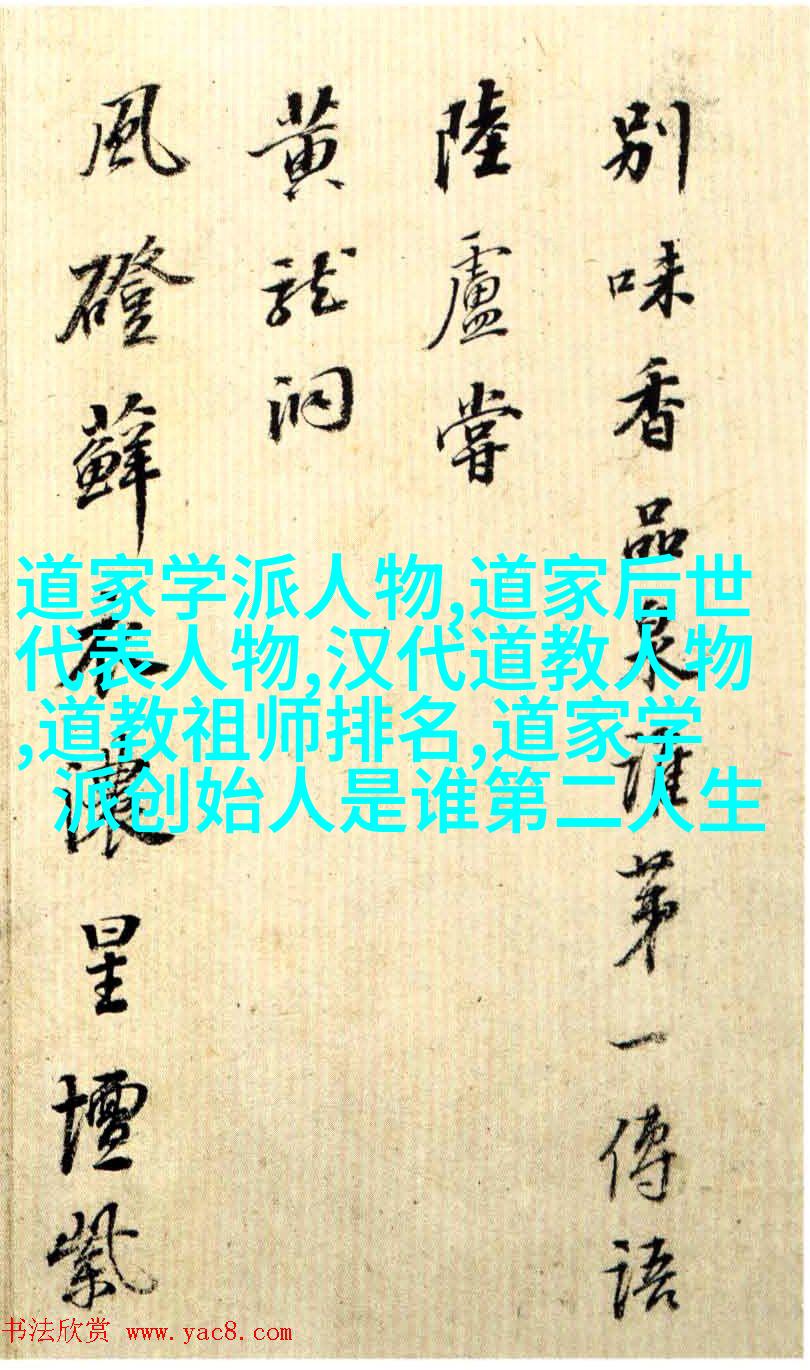 别味香品泉谁苐一傳语
陸廬嘗
黄龙洞
風磴蘚衣濃星壇紫
道家学派人物,道家后世
代表人物,汉代道教人物
,道教祖师排名,道家学
派创始人是谁第二人生
书法欣赏 www.yac8.com